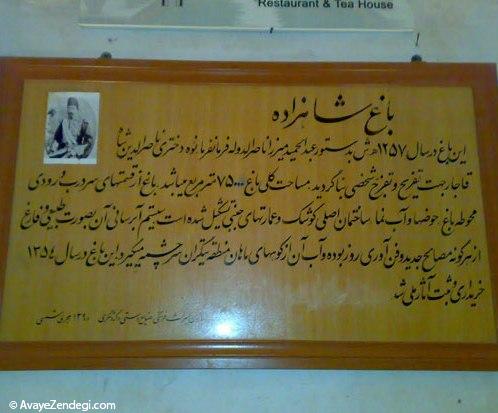 Restaurant & Tea House
باغ شاهزاده
این باغ در سال ۱۲۵۷ ه ش بدستور عبدالحمید میرزا ناصرالدوله فرمانفرما نوه دختری ناصرالدین شاه
قاجار جهت تفریح و تفرج شخصی بنا گردید. مساحت کلی باغ ۷۵۰۰۰ متر مربع میباشد. باغ از قسمتهای سردرب ورودی
محوطه باغ حوضها و آب نما، ساختمان اصلی کوشک و عمارتهای جنبی تشکیل شده است سیستم آبرسانی آن بصورت طبیعی و فارغ
از هر گونه مصالح جدید و فن آوری روز بوده و آب آن از کوههای ماهان منطقه تیگران سرچشمه میگیرد. این باغ در سال ۱۳۵۴
خریداری و ثبت آثار ملی شد
میراث فرهنگی صنایع دستی و گردشگری ۱۳۹۰ هجری شمسی
© AvayeZendegi.com